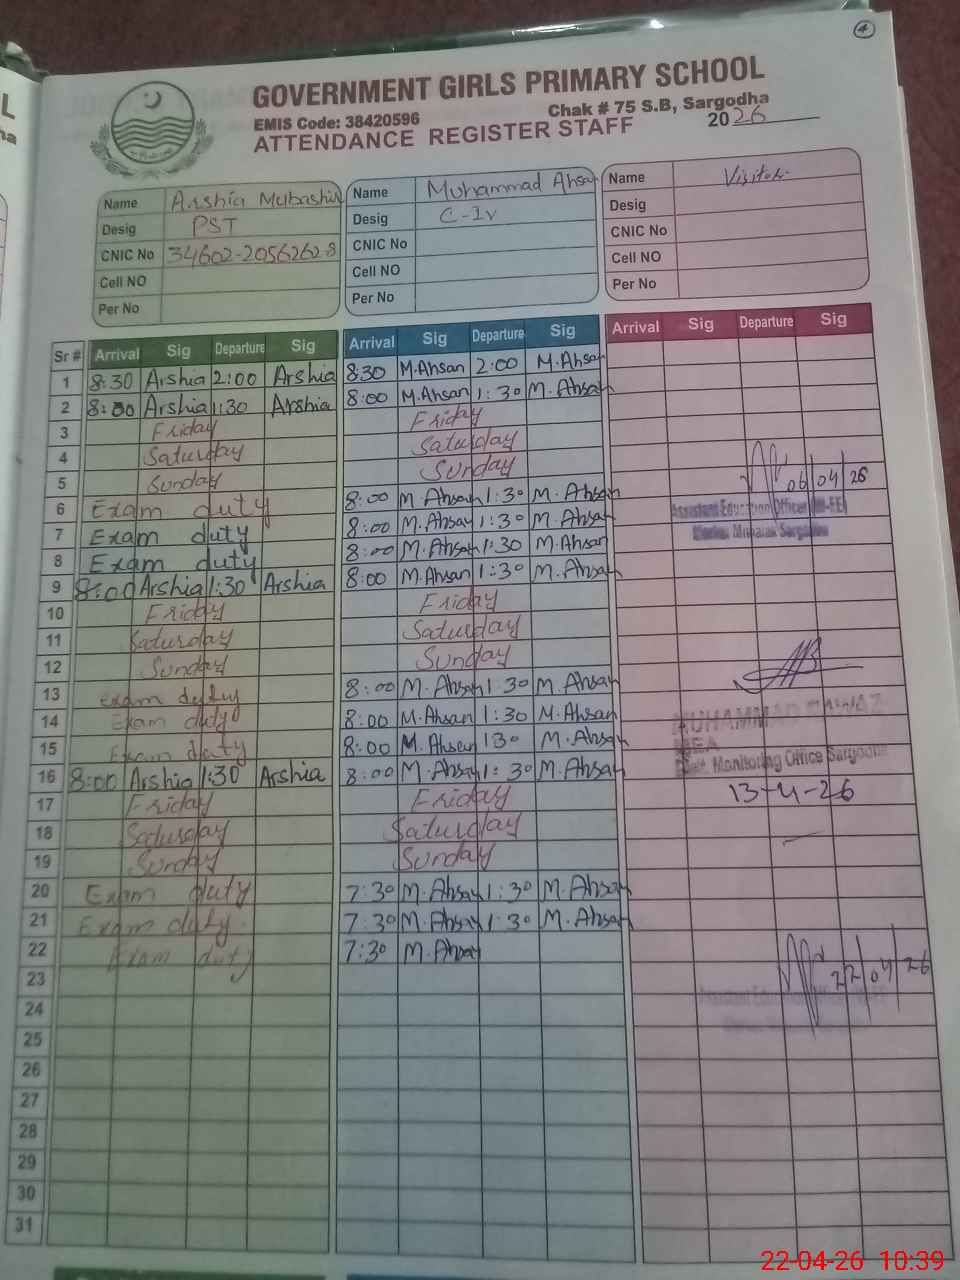 4
GOVERNMENT GIRLS PRIMARY SCHOOL
EMIS Code: 38420596 Chak # 75 S.B, Sargodha
ATTENDANCE REGISTER STAFF 2026
Name Arshia Mubashir
Desig PST
CNIC No 34602-2056262-8
Cell NO
Per No
Name Muhammad Ahsan
Desig C-Iv
CNIC No
Cell NO
Per No
Name Visitor
Desig
CNIC No
Cell NO
Per No
Sr # Arrival Sig Departure Sig Arrival Sig Departure Sig Arrival Sig Departure Sig
1 8:30 Arshia 2:00 Arshia 8:30 M.Ahsan 2:00 M.Ahsan
2 8:00 Arshia 1:30 Arshia 8:00 M.Ahsan 1:30 M.Ahsan
3 Friday Friday
4 Saturday Saturday
5 Sunday Sunday
6 Exam duty 8:00 M.Ahsan 1:30 M.Ahsan 06/04/26
7 Exam duty 8:00 M.Ahsan 1:30 M.Ahsan Assistant Education Officer (W-EE)
8 Exam duty 8:00 M.Ahsan 1:30 M.Ahsan
9 8:00 Arshia 1:30 Arshia 8:00 M.Ahsan 1:30 M.Ahsan
10 Friday Friday
11 Saturday Saturday
12 Sunday Sunday
13 Exam duty 8:00 M.Ahsan 1:30 M.Ahsan
14 Exam duty 8:00 M.Ahsan 1:30 M.Ahsan MUHAMMAD NAWAZ
15 Exam duty 8:00 M.Ahsan 130 M.Ahsan MEA
16 8:00 Arshia 1:30 Arshia 8:00 M.Ahsan 1:30 M.Ahsan Monitoring Office Sargodha
17 Friday Friday 13-4-26
18 Saturday Saturday
19 Sunday Sunday
20 Exam duty 7:30 M.Ahsan 1:30 M.Ahsan
21 Exam duty. 7:30 M.Ahsan 1:30 M.Ahsan
22 Exam duty 7:30 M.Ahsan
23 22/04/26
24 Assistant Education Officer
25
26
27
28
29
30
31
22-04-26 10:39